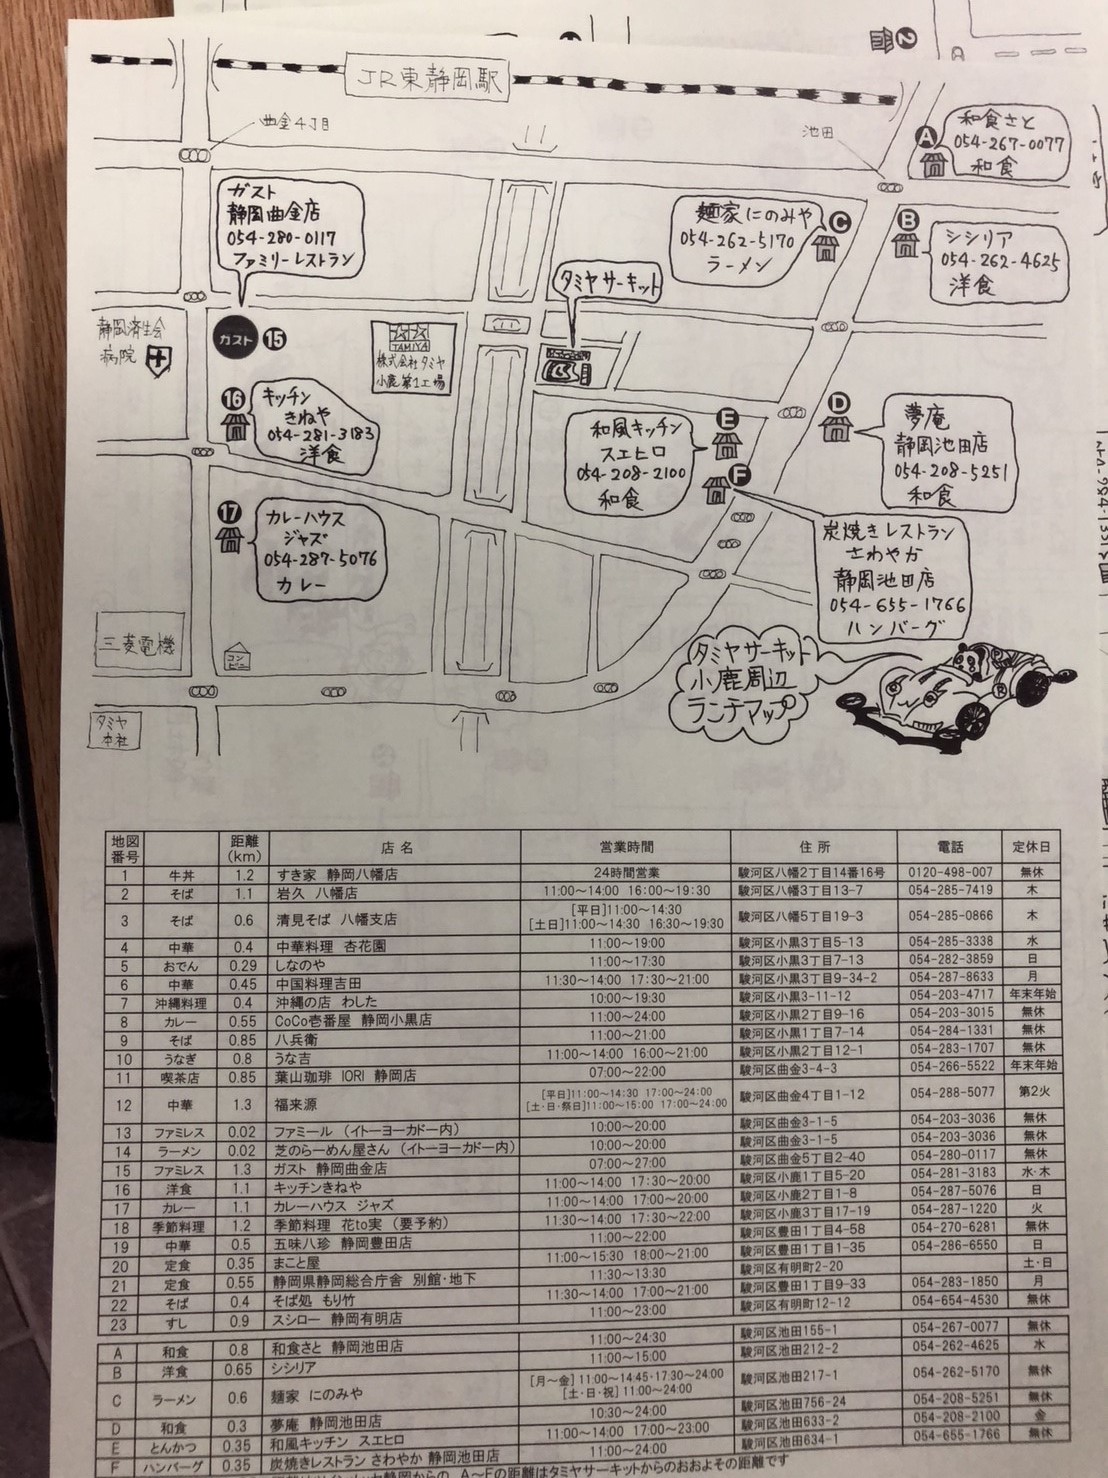 JR東静岡駅
曲金4丁目
池田
A
和食さと
054-267-0077
和食
ガスト
静岡曲金店
054-280-0117
ファミリーレストラン
麺家にのみや
054-262-5170
ラーメン
C
B
シシリア
054-262-4625
洋食
タミヤサーキット
静岡済生会
病院
ガスト 15
TAMIYA
株式会社タミヤ
小鹿第1工場
16
キッチン
きねや
054-281-3183
洋食
和風キッチン
スエヒロ
054-208-2100
和食
E
D
夢庵
静岡池田店
054-208-5251
和食
F
17
カレーハウス
ジャズ
054-287-5076
カレー
炭焼きレストラン
さわやか
静岡池田店
054-655-1766
ハンバーグ
三菱電機
コンビニ
タミヤサーキット
小鹿周辺
ランチマップ
タミヤ
本社
地図番号 距離(km) 店名 営業時間 住所 電話 定休日
1 牛丼 1.2 すき家 静岡八幡店 24時間営業 駿河区八幡2丁目14番16号 0120-498-007 無休
2 そば 1.1 岩久 八幡店 11:00～14:00 16:00～19:30 駿河区八幡3丁目13-7 054-285-7419 木
3 そば 0.6 清見そば 八幡支店 [平日]11:00～14:30 [土日]11:00～14:30 16:30～19:30 駿河区八幡5丁目19-3 054-285-0866 木
4 中華 0.4 中華料理 杏花園 11:00～19:00 駿河区小黒3丁目5-13 054-285-3338 水
5 おでん 0.29 しなのや 11:00～17:30 駿河区小黒3丁目7-13 054-282-3859 日
6 中華 0.45 中国料理吉田 11:30～14:00 17:30～21:00 駿河区小黒3丁目9-34-2 054-287-8633 月
7 沖縄料理 0.4 沖縄の店 わした 10:00～19:30 駿河区小黒3-11-12 054-203-4717 年末年始
8 カレー 0.55 CoCo壱番屋 静岡小黒店 11:00～24:00 駿河区小黒2丁目9-16 054-203-3015 無休
9 そば 0.85 八兵衛 11:00～21:00 駿河区小黒1丁目7-14 054-284-1331 無休
10 うなぎ 0.8 うな吉 11:00～14:00 16:00～21:00 駿河区小黒2丁目12-1 054-283-1707 無休
11 喫茶店 0.85 葉山珈琲 IORI 静岡店 07:00～22:00 駿河区曲金3-4-3 054-266-5522 年末年始
12 中華 1.3 福来源 [平日]11:00～14:30 17:00～24:00 [土・日・祭日]11:00～15:00 17:00～24:00 駿河区曲金4丁目1-12 054-288-5077 第2火
13 ファミレス 0.02 ファミール (イトーヨーカドー内) 10:00～20:00 駿河区曲金3-1-5 054-203-3036 無休
14 ラーメン 0.02 芝のらーめん屋さん (イトーヨーカドー内) 10:00～20:00 駿河区曲金3-1-5 054-203-3036 無休
15 ファミレス 1.3 ガスト 静岡曲金店 07:00～27:00 駿河区曲金5丁目2-40 054-280-0117 無休
16 洋食 1.1 キッチンきねや 11:00～14:00 17:30～20:00 駿河区小鹿1丁目5-20 054-281-3183 水・木
17 カレー 1.1 カレーハウス ジャズ 11:00～14:00 17:00～20:00 駿河区小鹿2丁目1-8 054-287-5076 日
18 季節料理 1.2 季節料理 花to実 (要予約) 11:30～14:00 17:30～22:00 駿河区小鹿3丁目17-19 054-287-1220 火
19 中華 0.5 五味八珍 静岡豊田店 11:00～22:00 駿河区豊田1丁目4-58 054-270-6281 無休
20 定食 0.35 まこと屋 11:00～15:30 18:00～21:00 駿河区豊田1丁目1-35 054-286-6550 日
21 定食 0.55 静岡県静岡総合庁舎 別館・地下 11:30～13:30 駿河区有明町2-20 土・日
22 そば 0.4 そば処 もり竹 11:30～14:00 17:00～21:00 駿河区豊田1丁目9-33 054-283-1850 月
23 すし 0.9 スシロー 静岡有明店 11:00～23:00 駿河区有明町12-12 054-654-4530 無休
A 和食 0.8 和食さと 静岡池田店 11:00～24:30 駿河区池田155-1 054-267-0077 無休
B 洋食 0.65 シシリア 11:00～15:00 駿河区池田212-2 054-262-4625 水
C ラーメン 0.6 麺家 にのみや [月～金] 11:00～14:45・17:30～24:00 [土・日・祝] 11:00～24:00 駿河区池田217-1 054-262-5170 無休
D 和食 0.3 夢庵 静岡池田店 10:30～24:00 駿河区池田756-24 054-208-5251 無休
E とんかつ 0.35 和風キッチン スエヒロ 11:00～14:00 17:00～23:00 駿河区池田633-2 054-208-2100 金
F ハンバーグ 0.35 炭焼きレストラン さわやか 静岡池田店 11:00～24:00 駿河区池田634-1 054-655-1766 無休
静岡からの、A～Fの距離はタミヤサーキットからのおおよその距離です